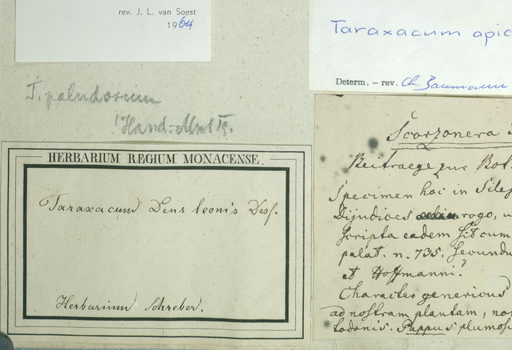 rev. J. L. van Soest
1964
Taraxacum apic
Determ. – rev. Ch. Baumann
T. paludosum
! Hand.-Mzt
HERBARIUM REGIUM MONACENSE.
Taraxacum Dens leonis Desf.
Herbarium Schreber.
Scorzonera
Beitraege zur Bot.
Specimen hoc in Siles
Dijudices rogo, u
Scripta eadem sit cum
palat. n. 735. secundu
et Hoffmanni?
Character genericus
ad nostram plantam, non
todonis. Pappus plumosu